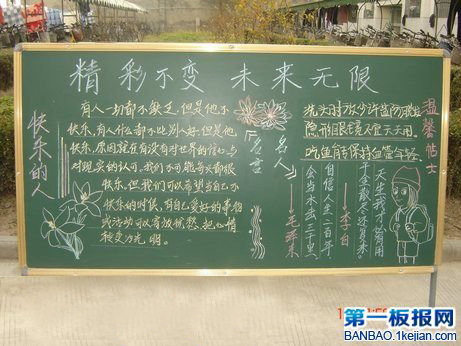 精彩不变 未来无限
快乐的人
有人一切都不缺乏，但是他不
快乐，有人什么都不比别人好，但是他
快乐，原因就在有没有对世界的信心与
对现实的认可，我们不可能每天都很
快乐，但我们可以希望自己不
快乐的时候，有自己爱好的事物
或活动可以寄放忧愁，把心情
名人
名言
自信人生二百年
会当水击三千里
毛泽东
天生我才必有用
千金散尽还复来
李白
温馨帖士
洗头时放少许盐防脱发
隐形眼镜不便天天用
吃鱼有助保持血管年轻
第一板报网
BANBAO.1kejian.com